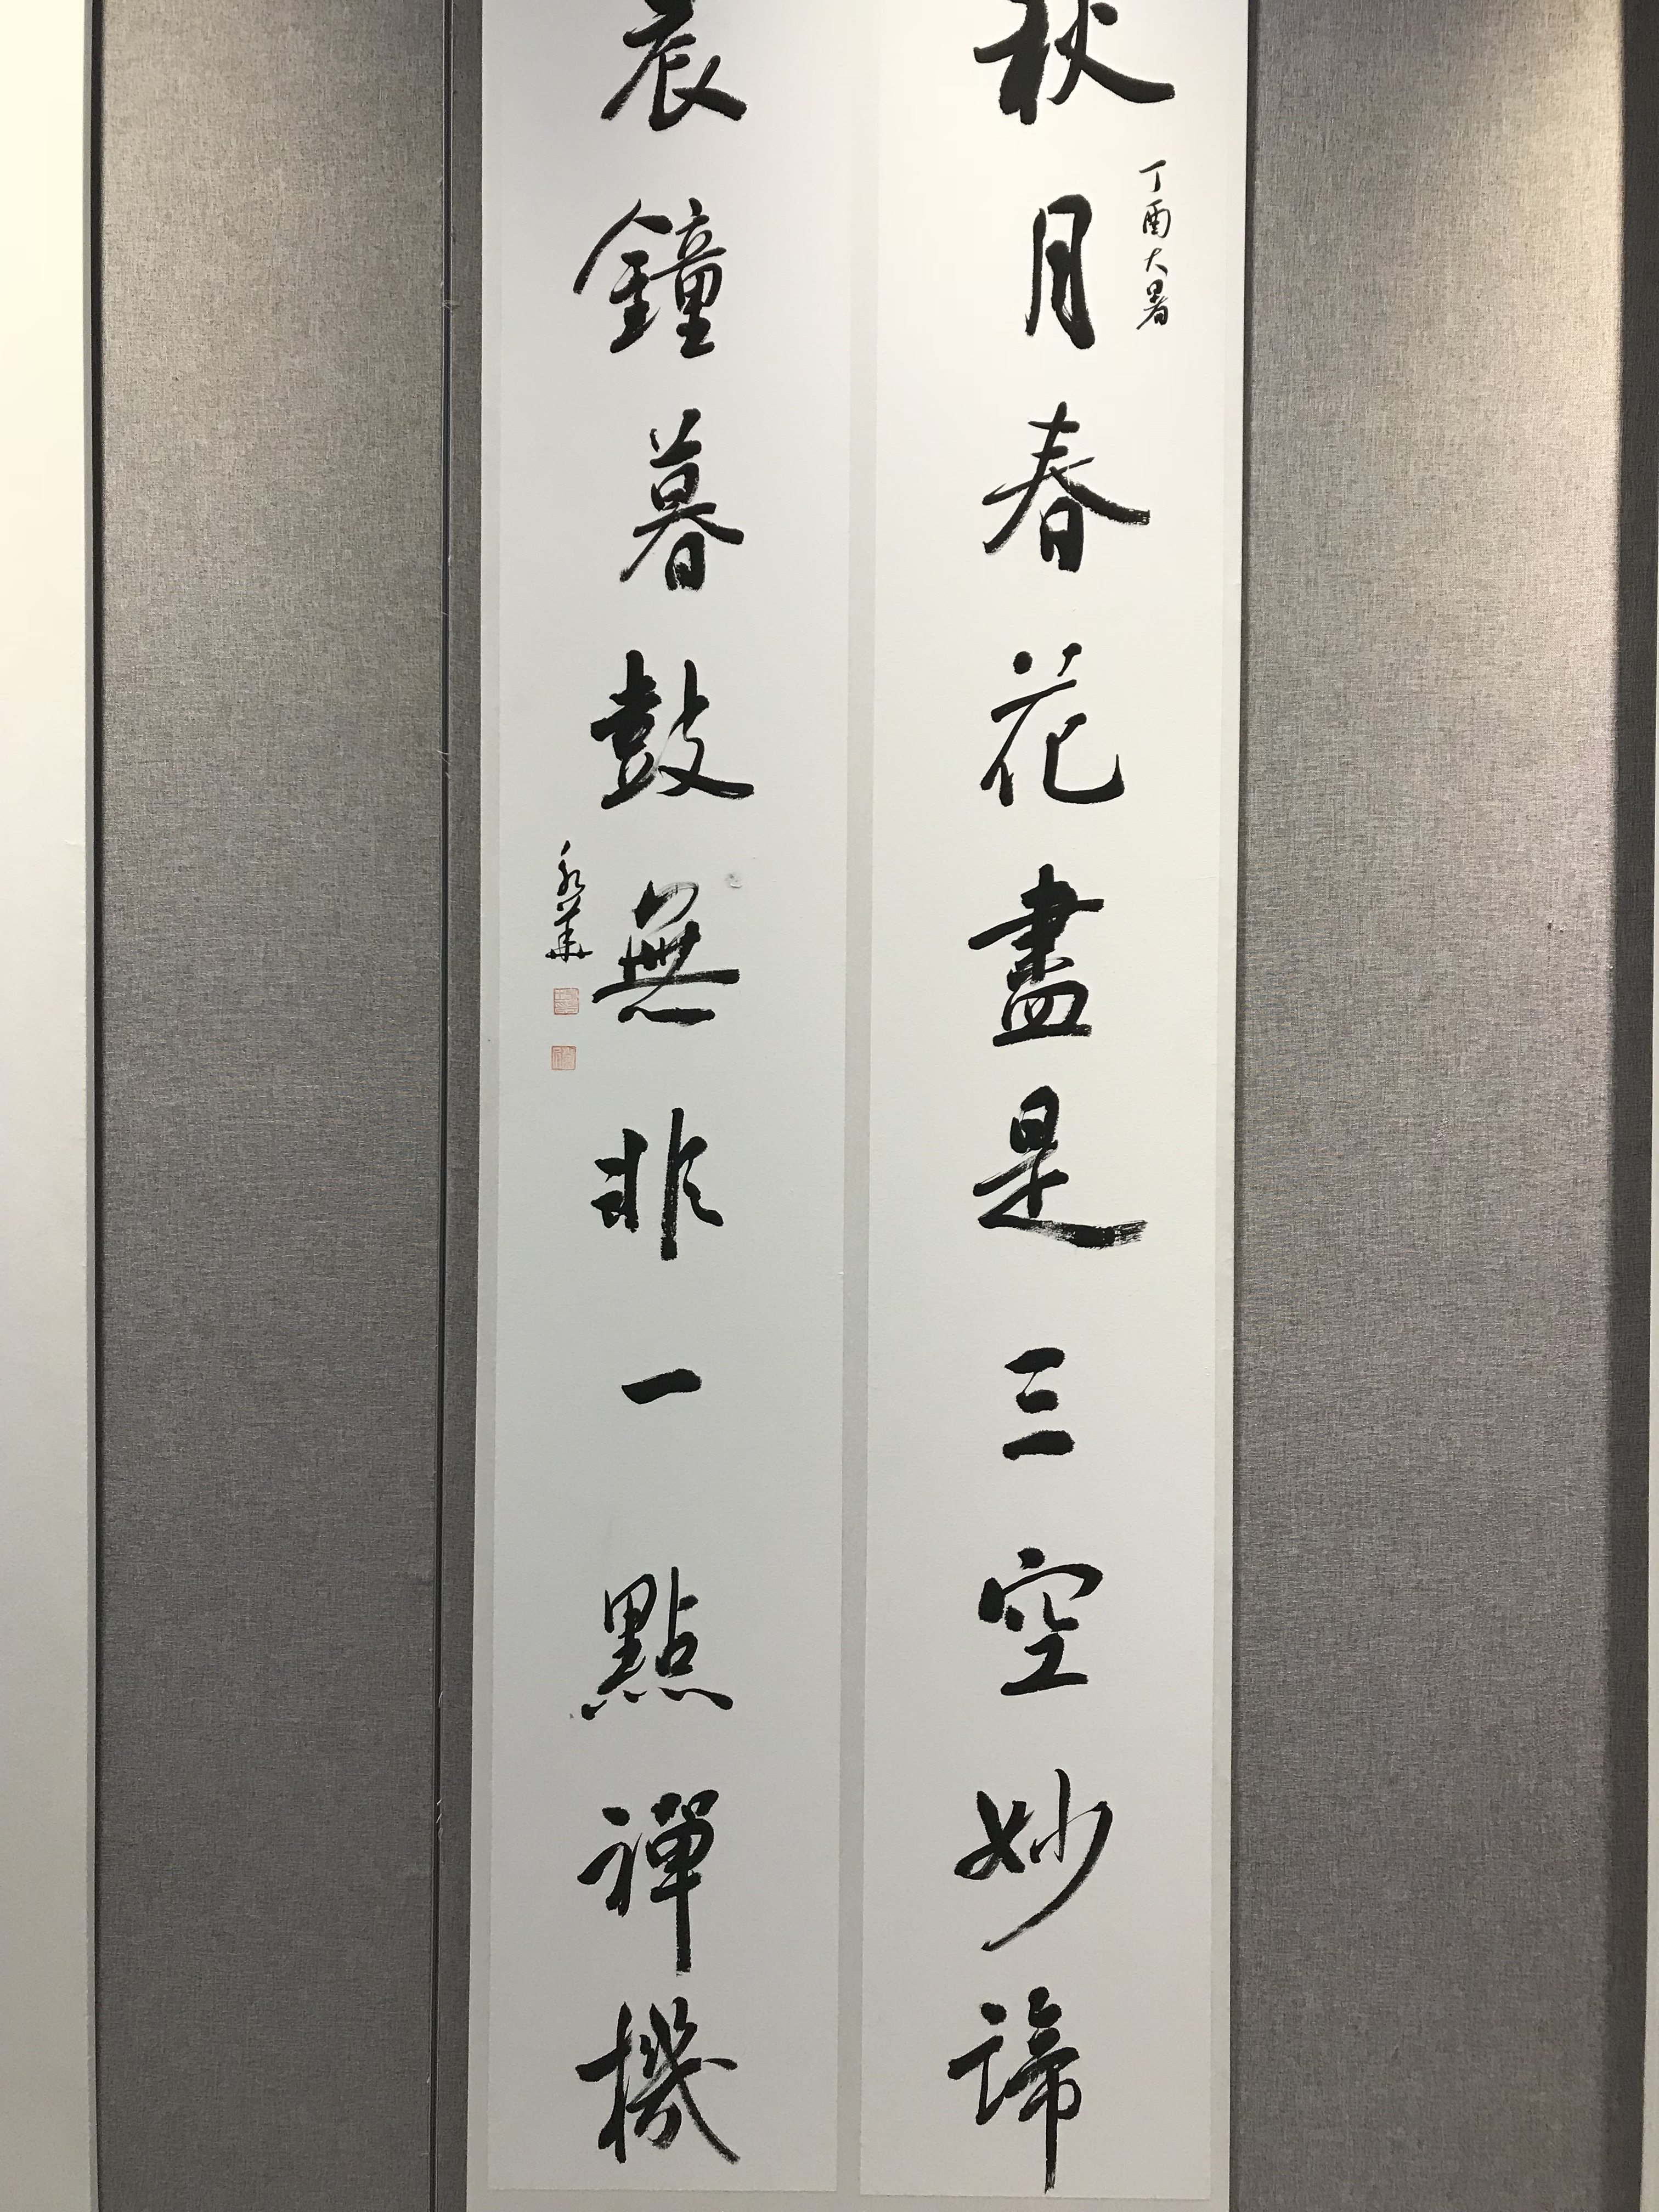 秋月春花盡是三空妙諦
丁酉大暑
晨鐘暮鼓無非一點禪機
永華